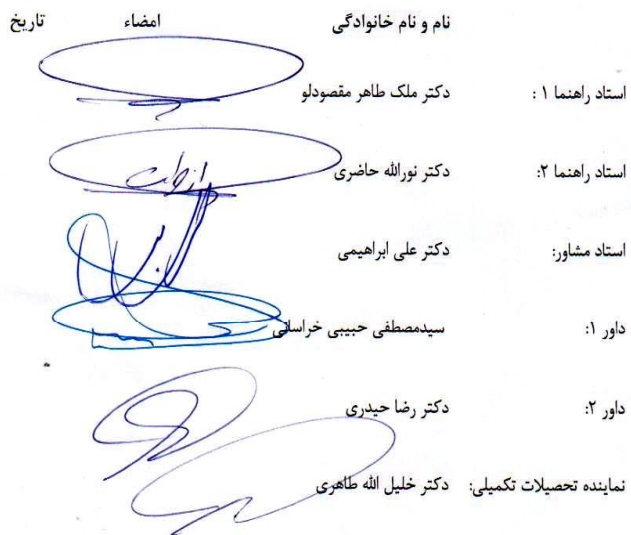 نام و نام خانوادگی امضاء تاریخ
استاد راهنما ۱ : دکتر ملک طاهر مقصودلو
استاد راهنما ۲: دکتر نورالله حاضری
استاد مشاور: دکتر علی ابراهیمی
داور ۱: سیدمصطفی حبیبی خراسانی
داور ۲: دکتر رضا حیدری
نماینده تحصیلات تکمیلی: دکتر خلیل الله طاهری